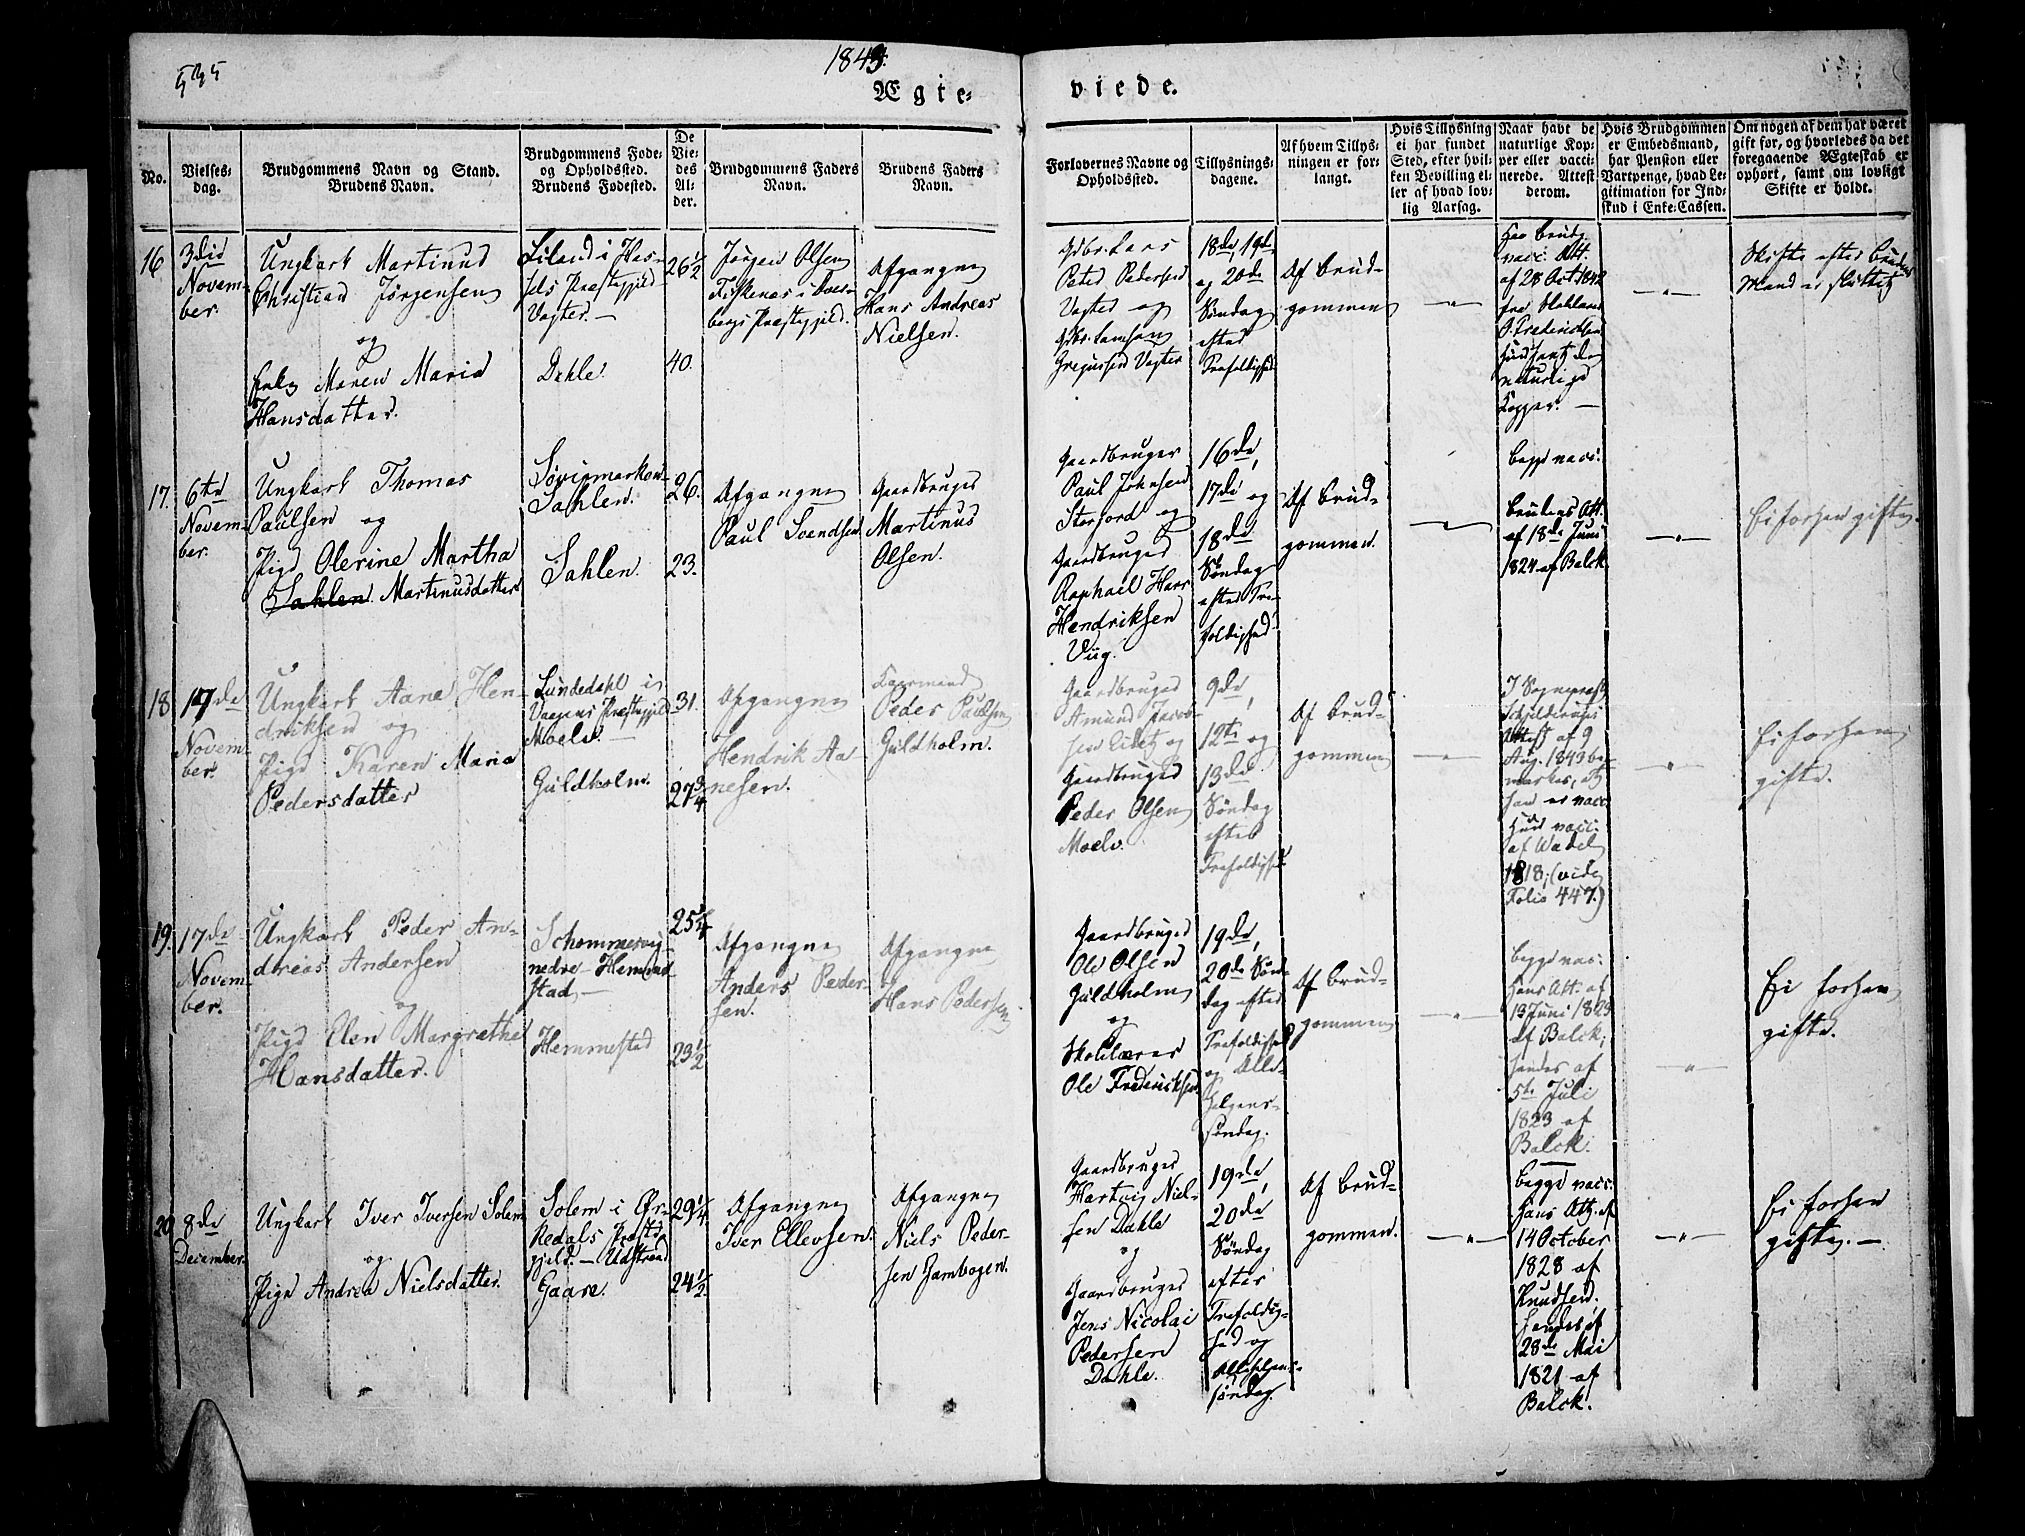 545
1843.
Ægte-
viede.
No.
Vielses-
dag.
Brudgommens Navn og Stand.
Brudens Navn.
Brudgommens Føde-
og Opholdssted.
Brudens Fødested.
De
Vie-
des
Al-
der.
Brudgommens Faders
Navn.
Brudens Faders
Navn.
Forlovernes Navne og
Opholdssted.
Tillysnings-
dagene.
Af hvem Tillys-
ningen er for-
langt.
Hvis Tillysning
ei har fundet
Sted, efter hvil-
ken Bevilling el-
ler af hvad lov-
lig Aarsag.
Naar havt de
naturlige Kop-
per eller vacci-
nerede. Attest
derom.
Hvis Brudgommen
er Embedsmand,
har Pension eller
Vartpenge, hvad Le-
gitimation for Ind-
skud i Enke-Cassen.
Om nogen af dem har været
gift før, og hvorledes da det
foregaaende Ægteskab er
ophørt, samt om lovligt
Skifte er holdt.
16
3die
Novem-
ber.
Ungkarl Martinus
Christian Jørgensen
og
Enke Maren Maria
Hansdatter.
i Has-
sels Præstegjeld
Vagter. —
Dahle.
26½
40.
Jørgen Olsen
Fiskenæs i Qvær-
bergs Præstegjeld.
Afgangne
Hans Andreas
Nielsen.
Gdbr. Lars
Peter Pedersen
Vagter og
Gdbr.
Gregusen Vagter
18de, 19de
og 20de
Søndag
efter
Trefoldighed
Af Brud-
gommen
— " —
Har Brudg.
vacc. Att.
af 28 Oct 1812
fra
O. Fredriksen
Hun havt de
naturlige
Kopper. —
— " —
Skifte efter Brudens
Mand er sluttet
17.
6te
Novem-
ber.
Ungkarl Thomas
Paulsen og
Pige Olerine Martha
Sahlen. Martinusdatter
Sahlen.
Sahlen.
26.
23.
Afgangne
Paul Svendsen
Gaardbruger
Martinus
Olsen.
Gaardbruger
Paul Johnsen
Storjord og
Gaardbruger
Raphael Hans
Hendriksen
Viig.
16de,
17de og
18de
Søndag
efter Tre-
foldighed
Af Brud-
gommen.
— " —
Begge vacc:
Brudens Att.
af 18de Juni
1824 af Balck.
— " —
Ei forhen gifte.
18
17de
Novem-
ber.
Ungkarl Aane Hen-
driksen og
Pige Karen Maria
Pedersdatter
Lundedahl i
Vaagens Præstegjeld
Moelv. —
Guldholm.
31.
27¾
Afgangne
Hendrik Aa-
nesen.
Kaarmand
Peder Paulsen
Guldholm.
Gaardbruger
Amund Jacob-
sen Eidet og
Gaardbruger
Peder Olsen
Moelv.
9de,
12te og
13de
Søndag
efter
Trefoldighed
Af Brud-
gommen
— " —
I Sognepræst
Schjelderups
Attest af 9
Aug. 1843 be-
mærkes, at
han er vacc
Hun vacc:
af Wadel
1818; (vide
Folio 447.)
— " —
Ei forhen
gifte.
19.
17de
Novem-
ber.
Ungkarl Peder An-
dreas Andersen
og
Pige Elen Margrethe
Hansdatter.
Schommervig
nedre – Hemme-
stad, —
Hemmestad
25¼
23½
Afgangne
Anders Peder-
sen.
Afgangne
Hans Pedersen
Gaardbruger
Ole Olsen
Guldholm
og
Skolelærer
Ole Fredriksen
19de,
20de Søn-
dag efter
Trefoldighed
og Alle-
helgens-
søndag.
Af Brud-
gommen
— " —
Begge vac:
Hans Att. af
13 Juni 1823
af Balck;
hendes af
5te Juli
1823 af
Balck.
— " —
Ei forhen
gifte.
20
8de
December.
Ungkarl Iver Iversen Solem
og
Pige Andrea Nielsdatter.
Solem i Ør-
kedals Præste-
gjeld. – Udstrand
Gaare.
29¼.
24½.
Afgangne
Iver Ellevsen.
Afgangne
Niels Peder-
sen Jambogen.
Gaardbruger
Hartvig Niel-
sen Dahle
og
Gaardbruger
Jens Nicolai
Pedersen
Dahle.
19de,
20de
Søndag
efter
Trefoldig-
hed og
Allehelgens-
søndag.
Af Brud-
gommen.
— " —
Begge vacc:
Hans Att. af
14 October
1828 af
Knudsen.
Hendes af
28de Mai
1821 af
Balck.
— " —
Ei forhen
gifte. —